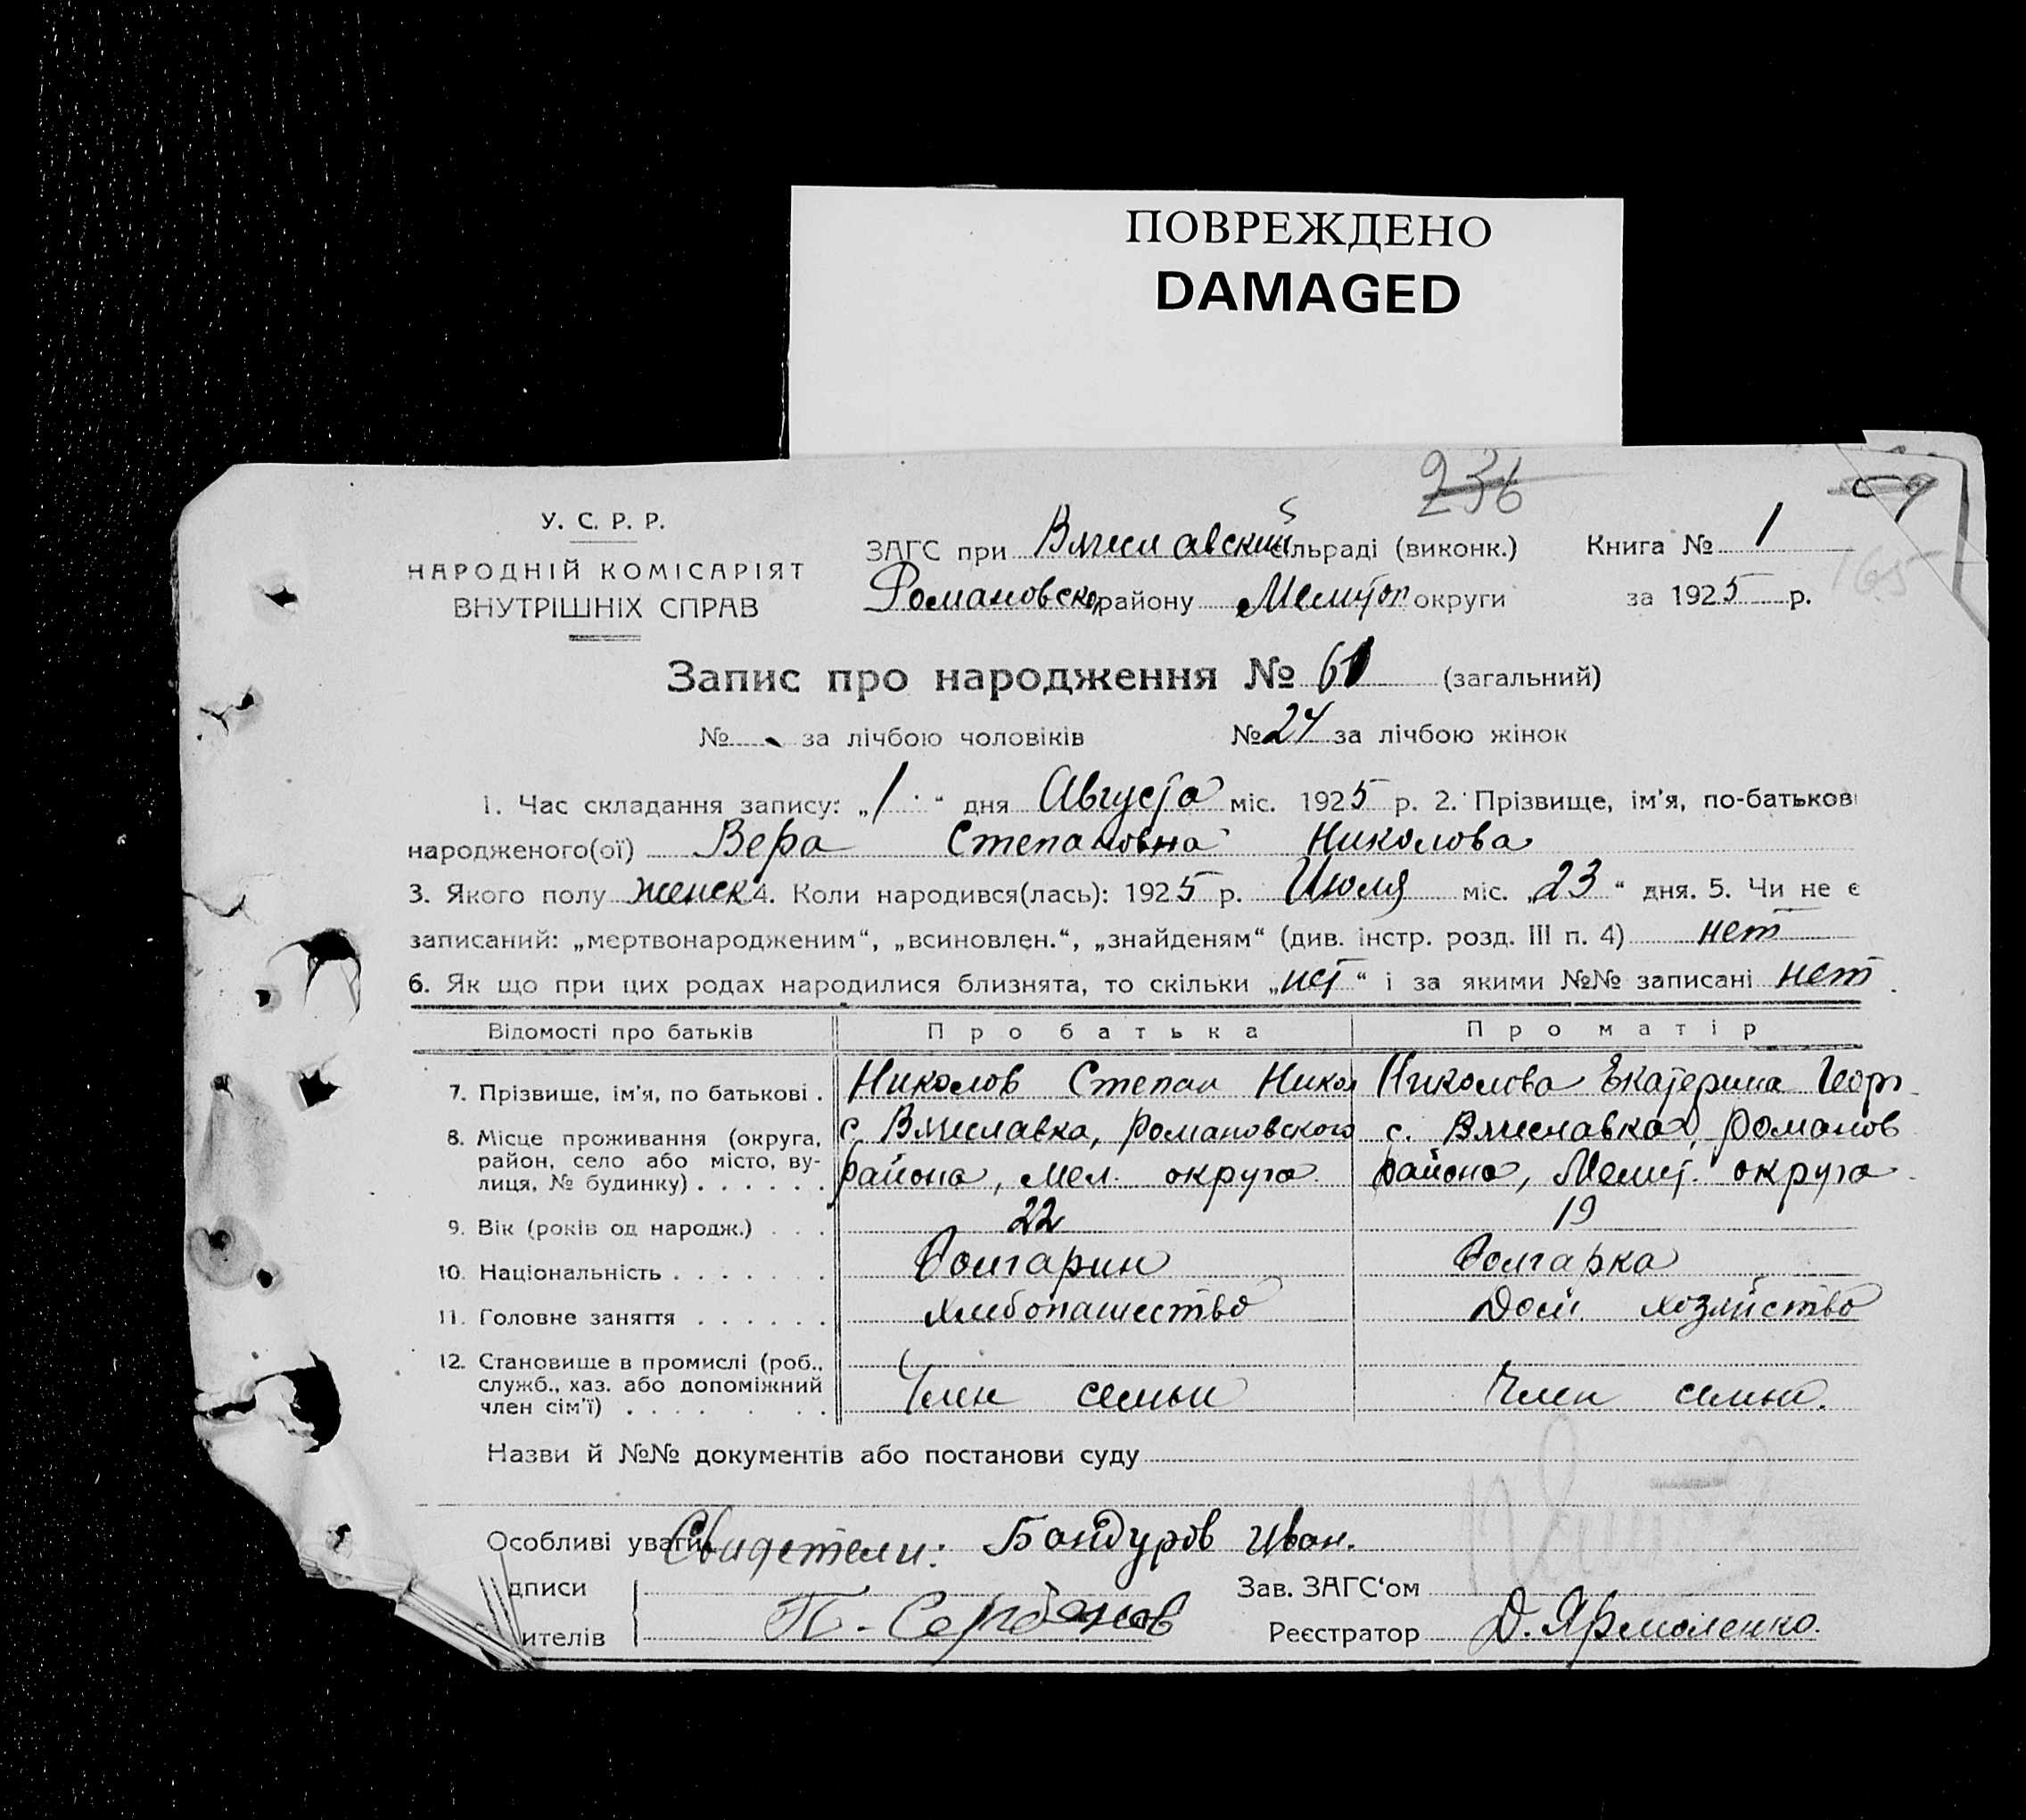 ПОВРЕЖДЕНО
DAMAGED
236
У. С. Р. Р.
НАРОДНІЙ КОМІСАРІЯТ
ВНУТРІШНІХ СПРАВ
ЗАГС при Вячеславский сільраді (виконк.) Книга № 1
Романовско району Мелитоп округи за 1925 р.
165
Запис про народження № 61 (загальний)
№ - за лічбою чоловіків № 24 за лічбою жінок
1. Час складання запису: „1" дня Августа міс. 1925 р. 2. Прізвище, ім'я, по-батькові
народженого(ої) Вера Степановна Николова
3. Якого полу женск 4. Коли народився(лась): 1925 р. Июля міс. „23" дня. 5. Чи не є
записаний: „мертвонародженим", „всиновлен.", „знайденям" (див. інстр. розд. III п. 4) нет
6. Як що при цих родах народилися близнята, то скільки „нет" і за якими №№ записані нет.
Відомості про батьків Про батька Про матір
7. Прізвище, ім'я, по батькові . Николов Степан Никол Николова Екатерина Георг
8. Місце проживання (округа, район, село або місто, вулиця, № будинку) . . . . . . с. Вячеславка, Романовского района, Мел. округа с. Вячеславка, Романов района, Мелит. округа
9. Вік (років од народж.) . . . 22 19
10. Національність . . . . . . . болгарин болгарка
11. Головне заняття . . . . . . хлебопашество Дом. хозяйство
12. Становище в промислі (роб., служб., хаз. або допоміжний член сім'ї) . . . . . . Член семьи Член семьи.
Назви й №№ документів або постанови суду
Особливі уваги Свидетели: Бандуров Иван.
дписи Зав. ЗАГС'ом
ителів П. Сербанов Реєстратор Д. Ярмоленко.